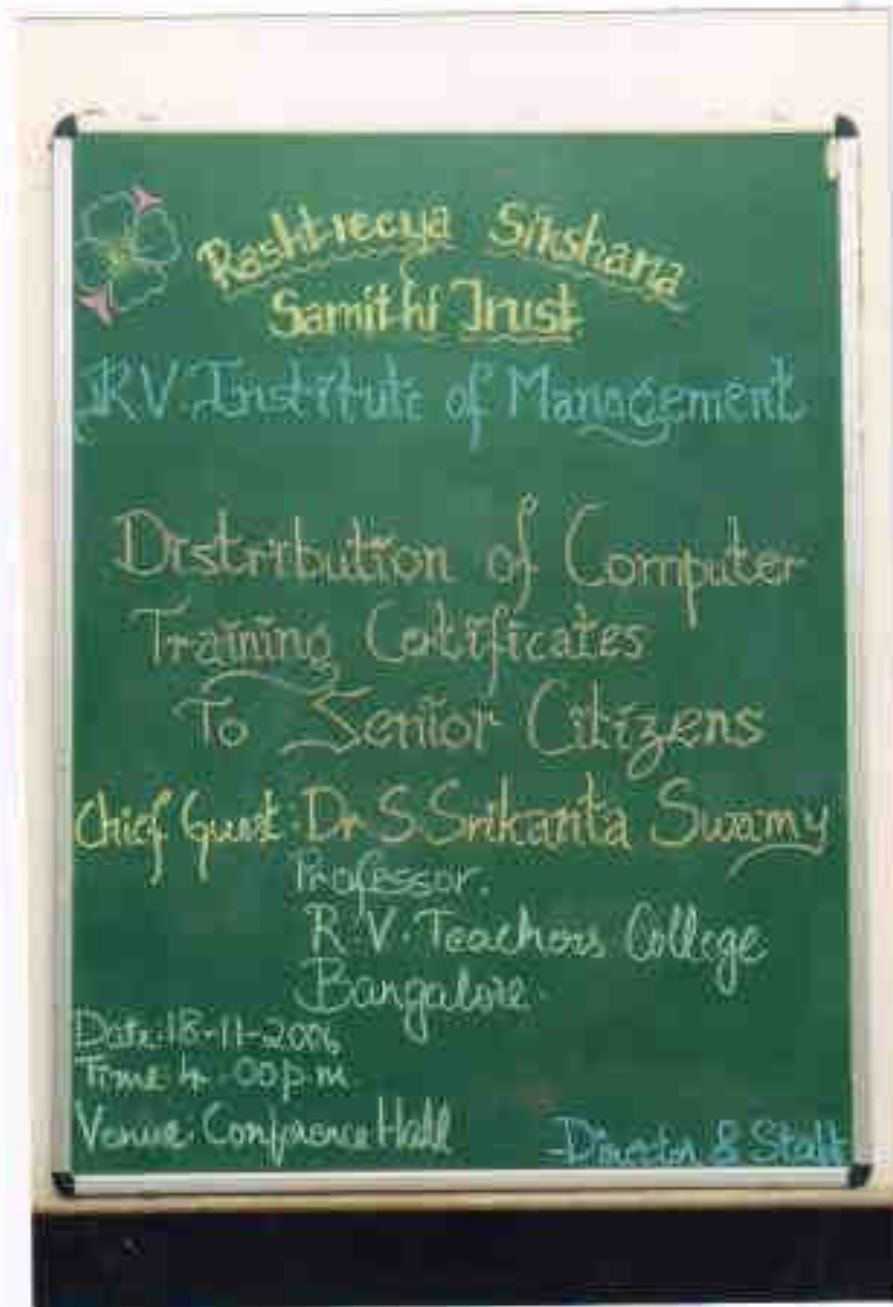 Rashtreeya Sikshana
Samithi Trust
R.V. Institute of Management
Distribution of Computer
Training Certificates
To Senior Citizens
Chief Guest: Dr S. Srikanta Swamy
Professor.
R.V. Teachers College
Bangalore.
Date: 18-11-2006
Time 4.00 p.m
Venue: Conference Hall
-Director & Staff